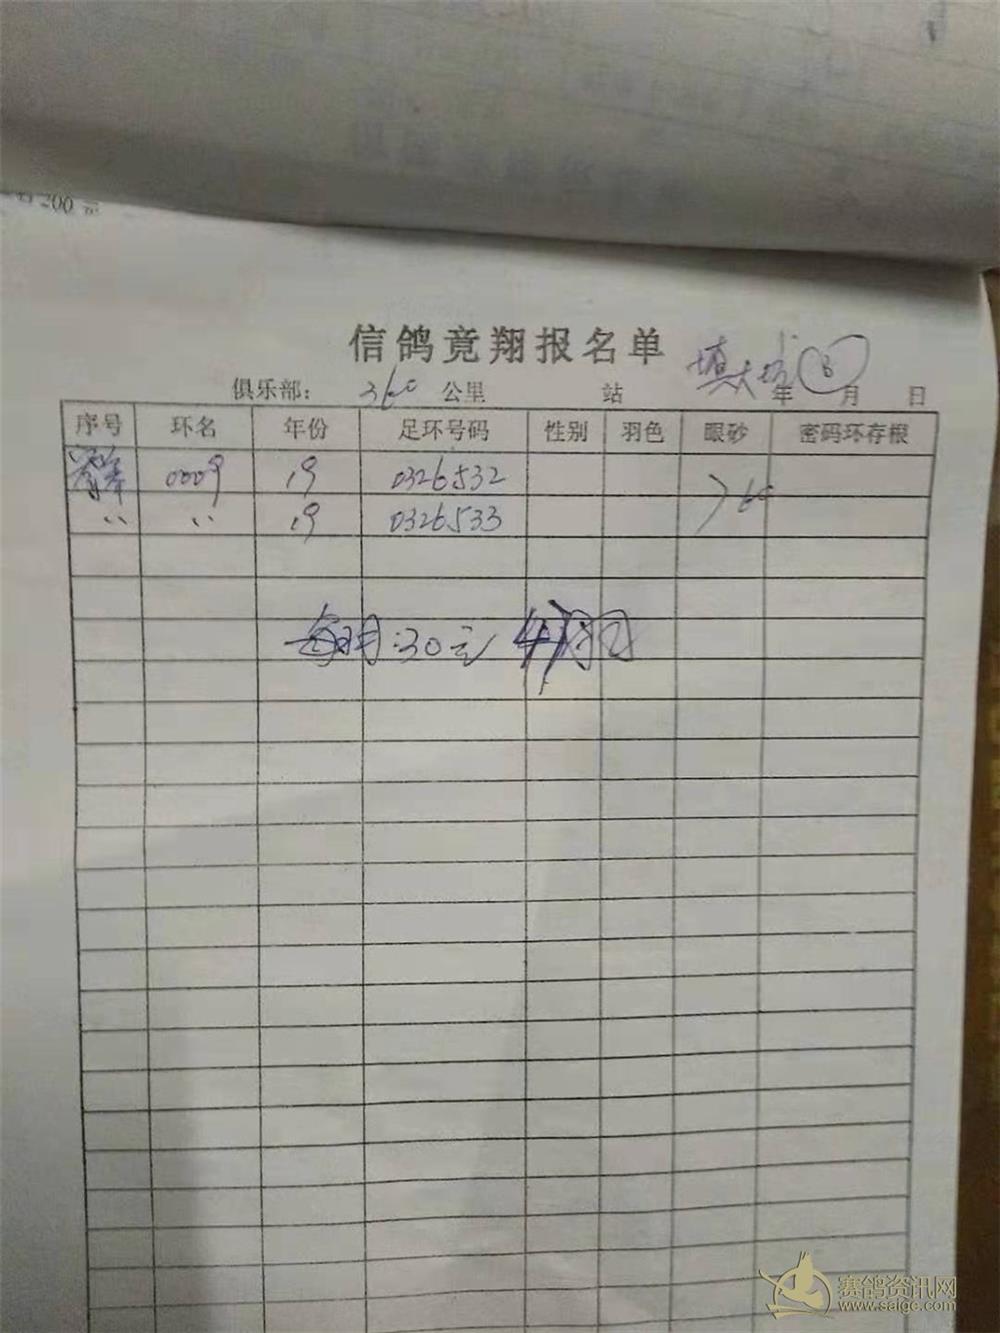 200
信鸽竟翔报名单
俱乐部： 360 公里 站 年 月 日
序号 环名 年份 足环号码 性别 羽色 眼砂 密码环存根
0009 19 0326532
〃 〃 19 0326533
60
每羽:30元
赛鸽资讯网
www.saigc.com